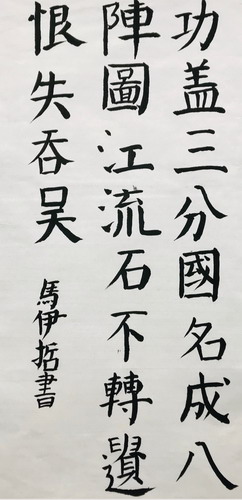 功盖三分國名成八
陣圖江流石不轉遺
恨失吞吴
馬伊哲書